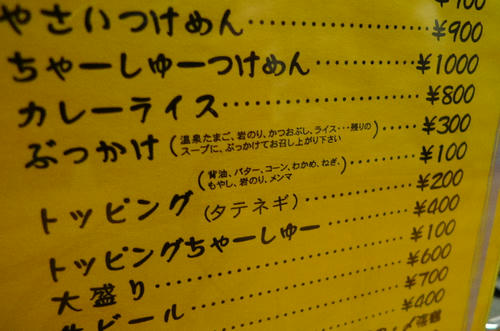 やさいつけめん ¥900
ちゃーしゅーつけめん ¥1000
カレーライス ¥800
ぶっかけ (温泉たまご、岩のり、かつおぶし、ライス・・・残りの
スープに、ぶっかけてお召し上がり下さい ¥300
(背油、バター、コーン、わかめ、ねぎ、
もやし、岩のり、メンマ ¥100
トッピング (タテネギ) ¥200
トッピングちゃーしゅー ¥400
大盛り ¥100
生ビール ¥600
¥700
¥400